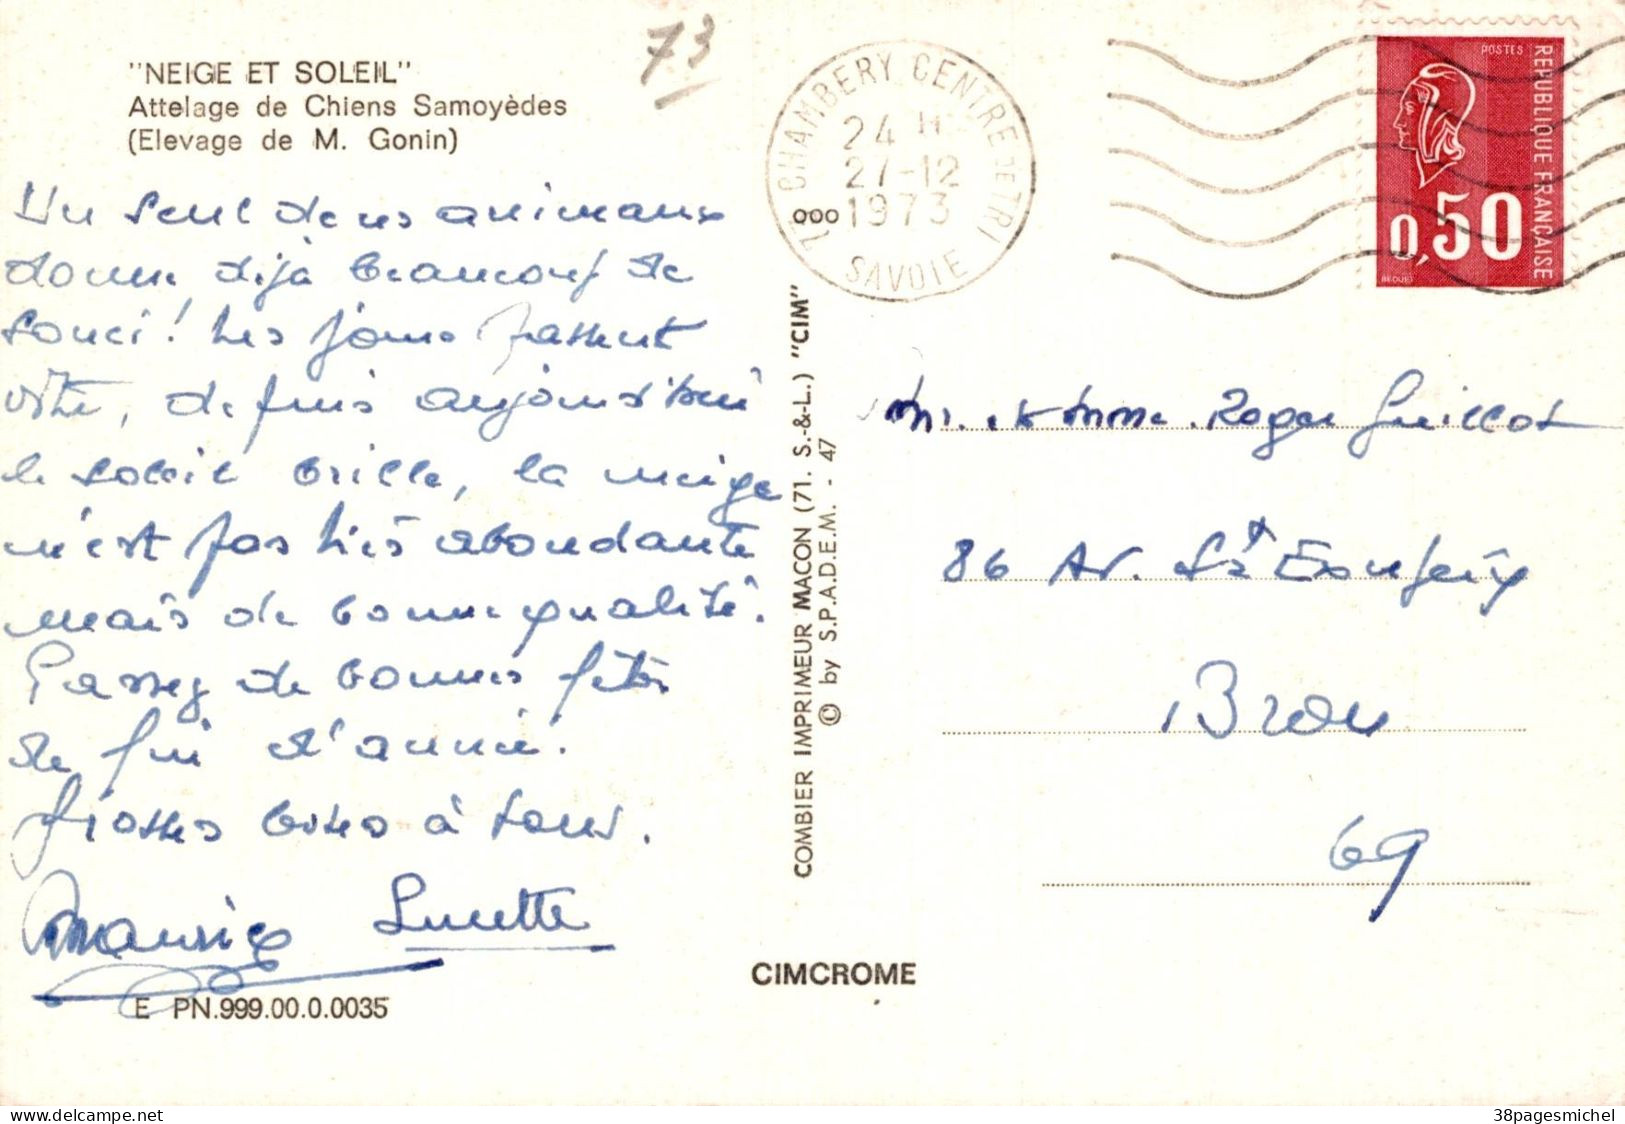 "NEIGE ET SOLEIL"
Attelage de Chiens Samoyèdes
(Elevage de M. Gonin)
73
Un seul de ces animaux
donne déjà beaucoup de
souci! Les jours passent
vite, depuis aujourd'hui
le soleil brille, la neige
n'est pas très abondante
mais de bonne qualité.
Passez de bonnes fêtes
de fin d'année.
Grosses bises à tous.
Maurice Lucette
E PN.999.00.0.0035
COMBIER IMPRIMEUR MACON (71. S.-&-L.) "CIM"
© by S.P.A.D.E.M. - 47
CIMCROME
CHAMBERY CENTRE DE TRI
24 H
27-12
1973
SAVOIE
POSTES
REPUBLIQUE FRANÇAISE
0,50
BEQUET
M. et Mme Roger Guillot
86 Av. St Exupéry
Bron
69
delcampe.net
38pagesmichel